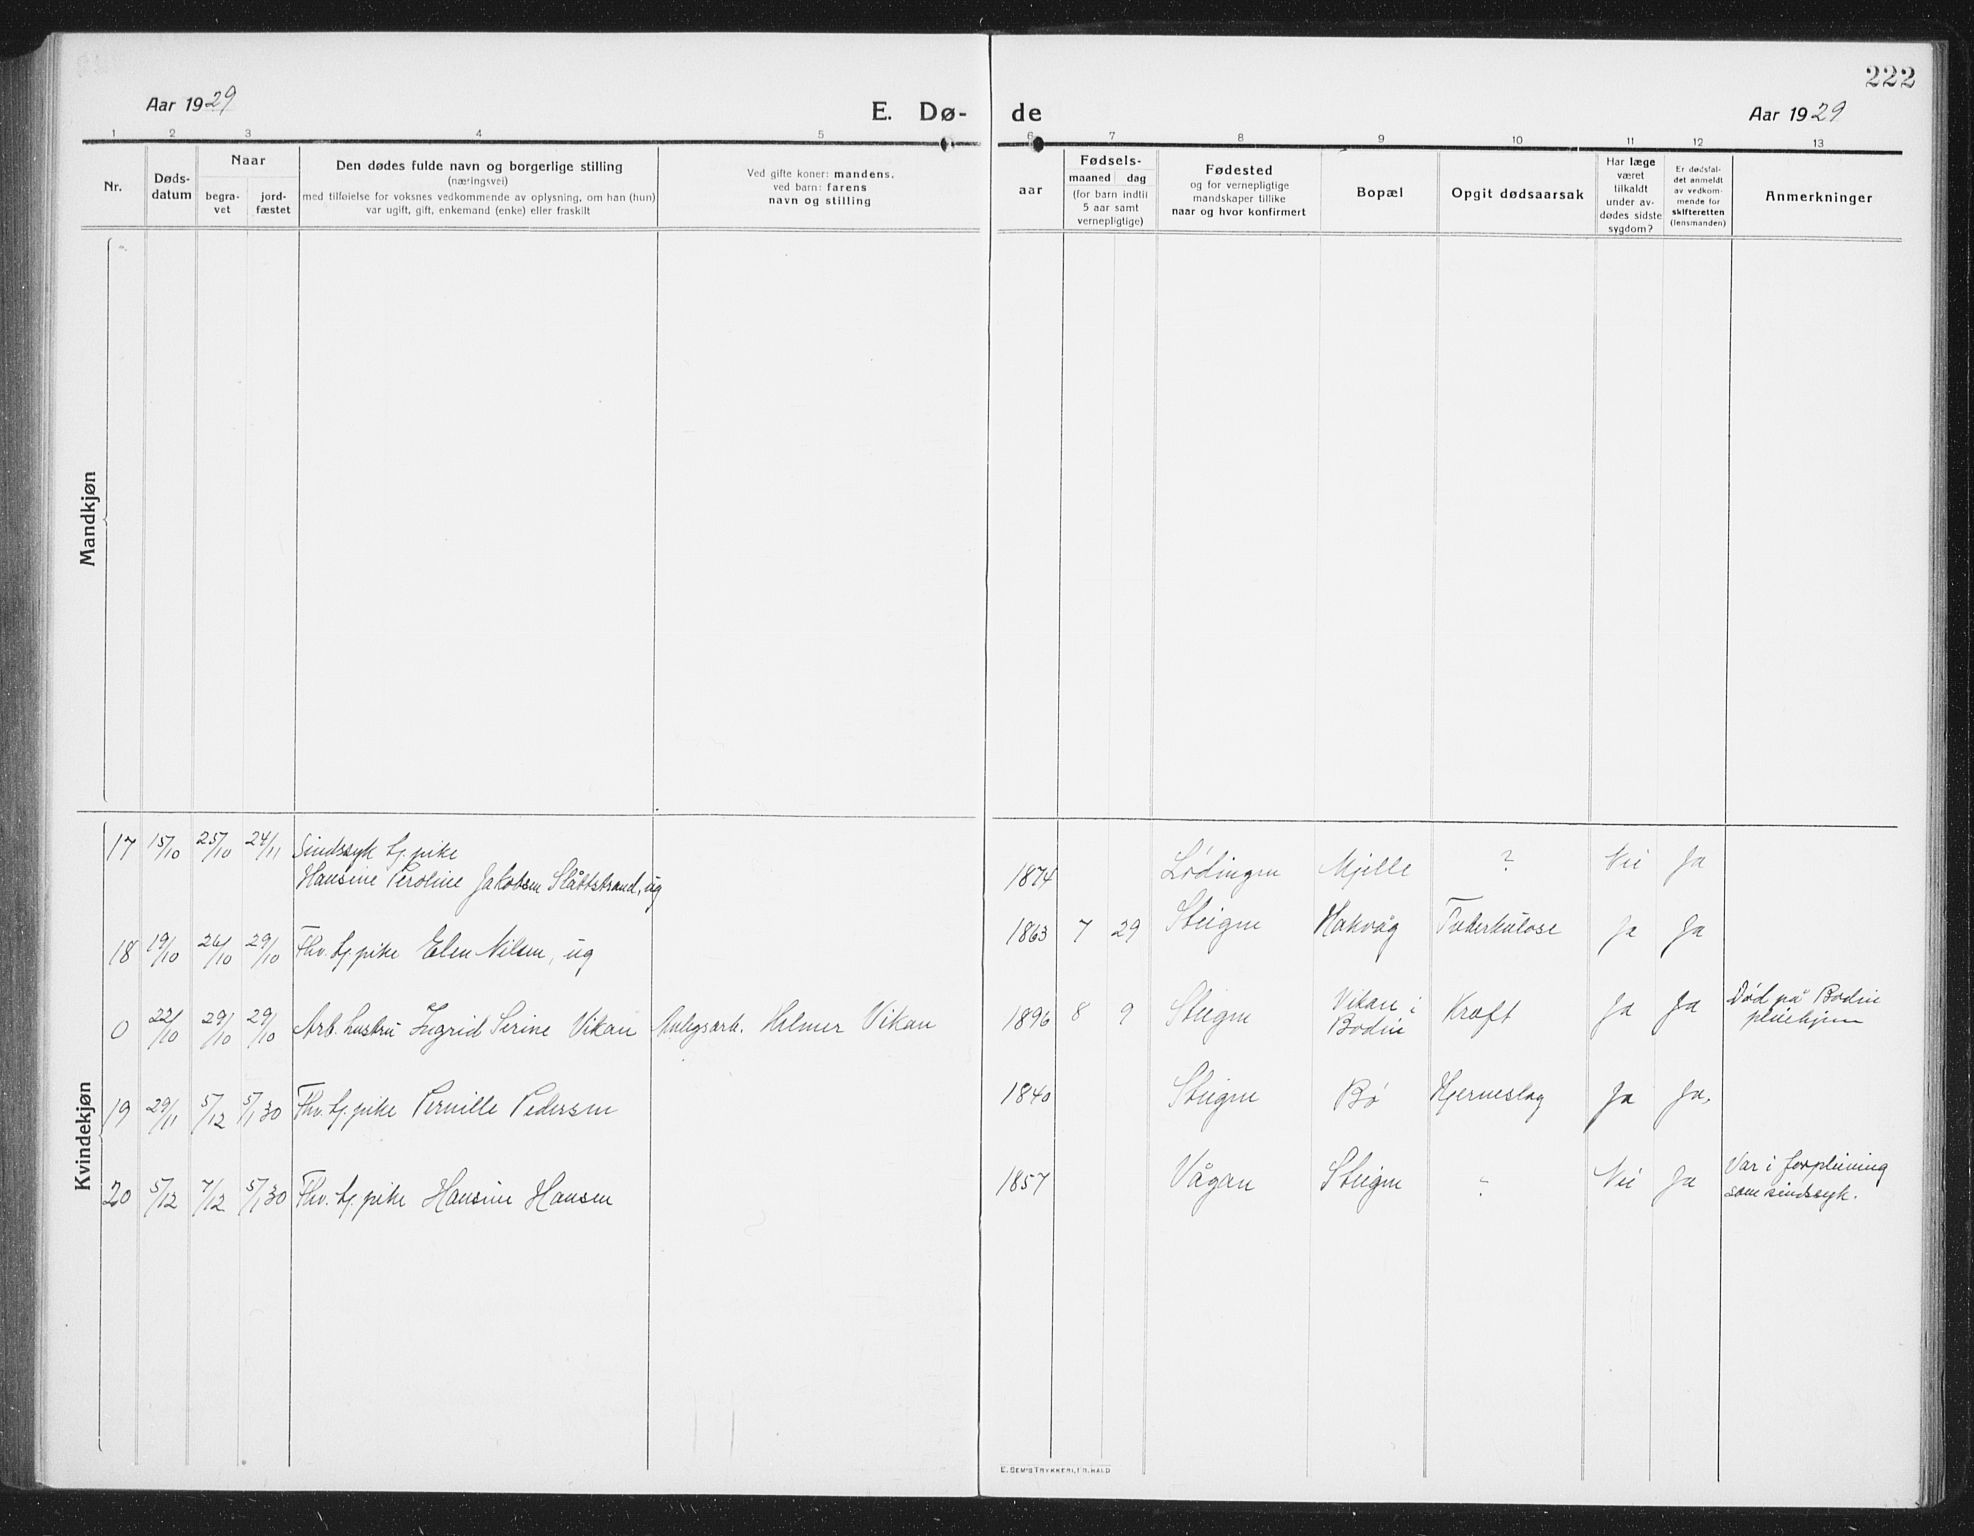 222
Aar 1929
E. Dø-
de
Aar 1929
1 2 3 4 5 6 7 8 9 10 11 12 13
Nr.
Døds-
datum
Naar
begra-
vet
jord-
fæstet
Den dødes fulde navn og borgerlige stilling
(næringsvei)
med tilføielse for voksnes vedkommende av oplysning, om han (hun)
var ugift, gift, enkemand (enke) eller fraskilt
Ved gifte koner: mandens.
ved barn: farens
navn og stilling
aar
Fødsels-
maaned dag
(for barn indtil
5 aar samt
vernepligtige)
Fødested
og for vernepligtige
mandskaper tillike
naar og hvor konfirmert
Bopæl
Opgit dødsaarsak
Har læge
været
tilkaldt
under av-
dødes sidste
sygdom?
Er dødsfal-
det anmeldt
av vedkom-
mende for
skifteretten
(lensmanden)
Anmerkninger
Mandkjøn
Kvindekjøn
17 15/10 25/10 24/11 Sindssyk fj. pike
Hansine Peroline Jakobsen Slåttstrand, ug
1874 Lødingen Mjelle ? Nei Ja
18 19/10 26/10 29/10 Fhv. tj. pike Elen Nilsen, ug
1863 7 29 Steigen Hakvåg Tuberkulose Ja Ja
0 22/10 29/10 29/10 Arb. hustru Ingrid Serine Vikan Anlegsarb. Hilmer Vikan
1896 8 9 Steigen Vikan i
Bodin Kræft Ja Ja Død på Bodin
pleiehjem
19 29/11 5/12 5/1 30 Fhv. tj. pike Pernille Pedersen
1840 Steigen Bø Hjerneslag Ja Ja,
20 5/12 7/12 5/1 30 Fhv. tj. pike Hansine Hansen
1857 Vågan Steigen ? Nei Ja Var i forpleining
som sindssyk.
E. SEM'S TRYKKERI, FR. HALD